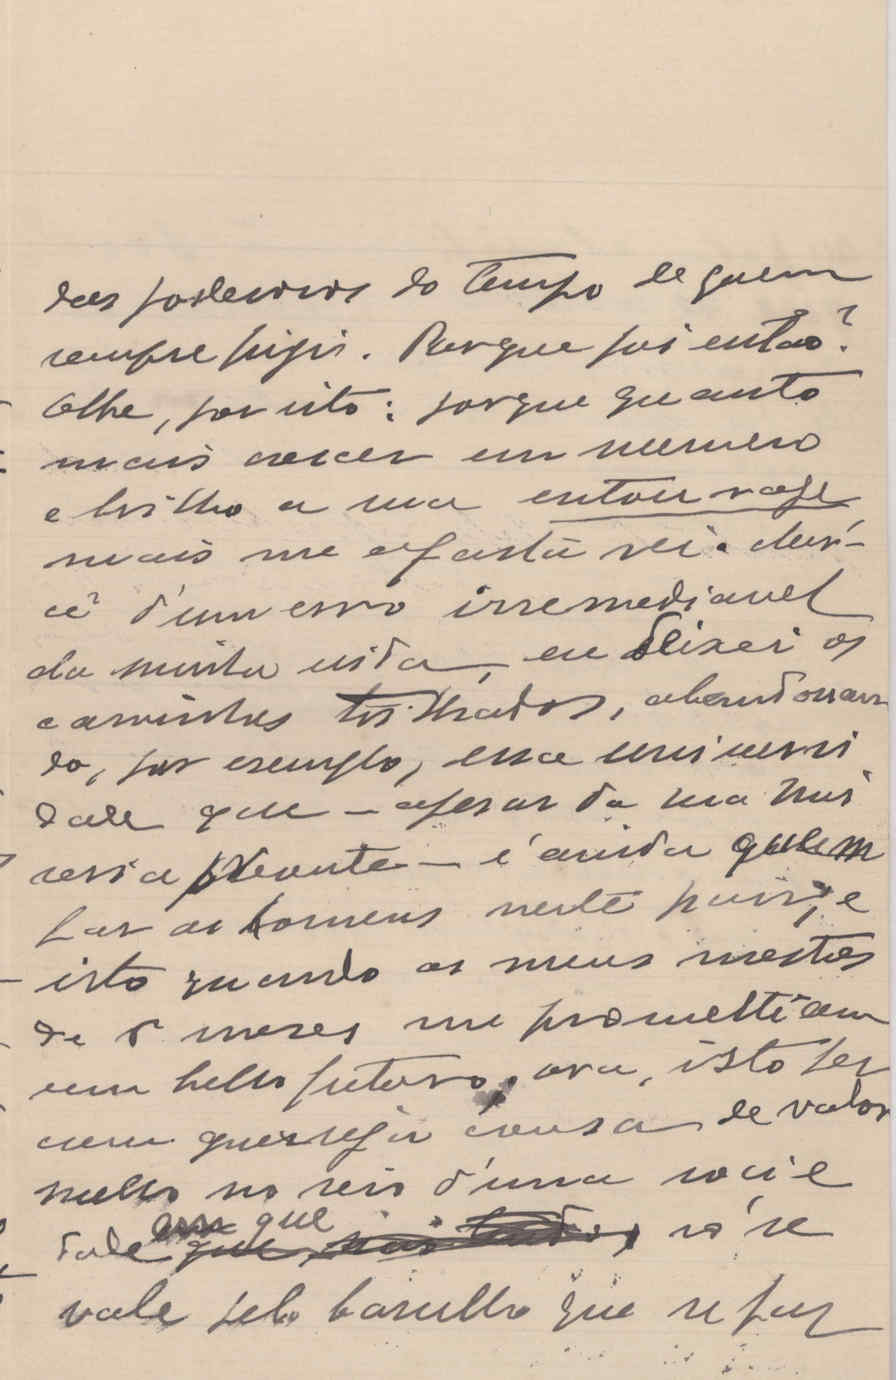 das poderosos do tempo de quem
sempre fugi. Porque foi então?
Olhe, por isto: porque quanto
mais crescer em numero
e brilho a sua entourage
mais me afastarei. Auri-
cê d'um erro irremediavel
da minha vida, eu deixei os
caminhos trilhados, abandonan
do, por exemplo, essa universi
dade que — apesar da sua mi
seria presente — é ainda quem
faz os homens neste paiz, e
isto quando os meus mestres
de 5 mezes me promettiam
um bello futuro, ora, isto fez
com que seja cousa de valor
nullo no seio d'uma socie
dade em que só se
vale pelo barulho que se faz